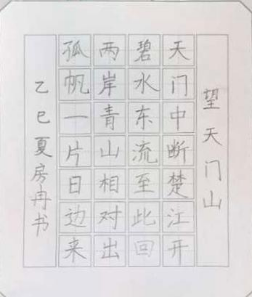 望天门山
天门中断楚江开
碧水东流至此回
两岸青山相对出
孤帆一片日边来
乙巳夏房冉书